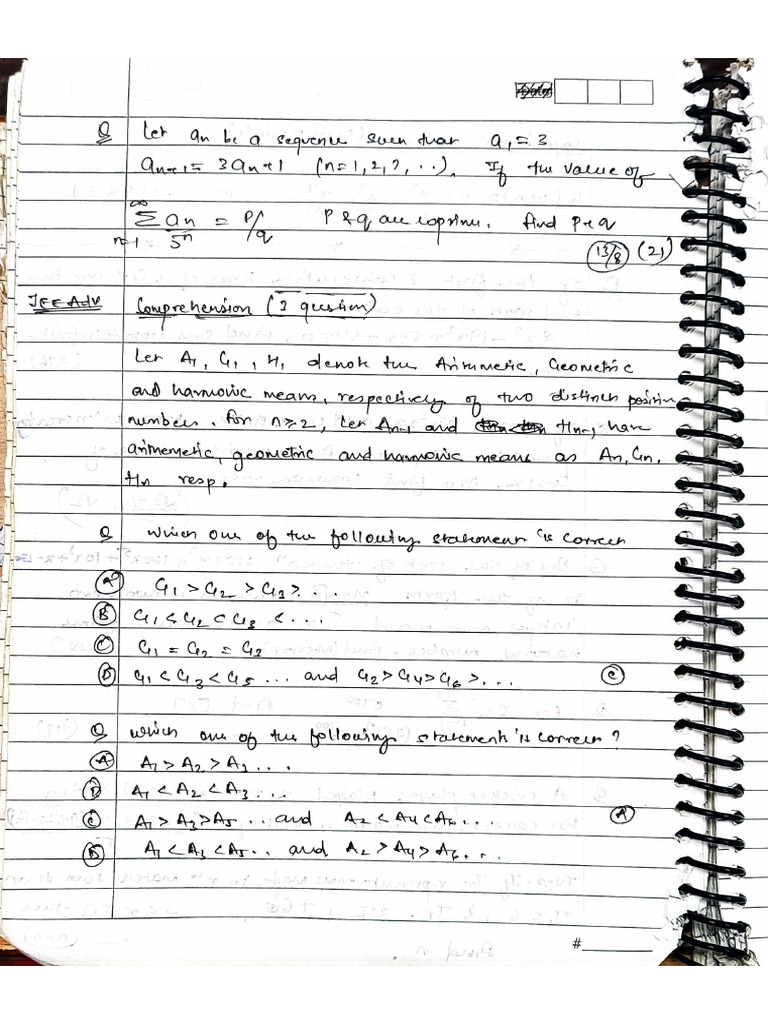 Q Let an be a sequence such that a1 = 3
an+1 = 3an+1 (n=1,2,3,...). If the value of
∞
Σ an/5^n = P/q P & q are coprime. find P+q
n=1
13/8 (21)
JEE Adv Comprehension (3 question)
Let A1, G1, H1 denote the Arithmetic, Geometric
and harmonic means, respectively of two distinct positive
numbers. For n≥2, Let An-1 and Hn-1 have
arithemetic, geometric and harmonic means as An, Gn,
Hn resp.
Q Which one of the following statement is correct
(a) G1 > G2 > G3 > ..
(B) G1 < G2 < G3 < ....
(C) G1 = G2 = G3
(D) G1 < G3 < G5 ... and G2 > G4 > G6 > ... (C)
Q which one of the following statement is correct?
(A) A1 > A2 > A3 ....
(B) A1 < A2 < A3 ...
(C) A1 > A3 > A5 ... and A2 < A4 < A6 ... (A)
(D) A1 < A3 < A5 ... and A2 > A4 > A6 ...
#